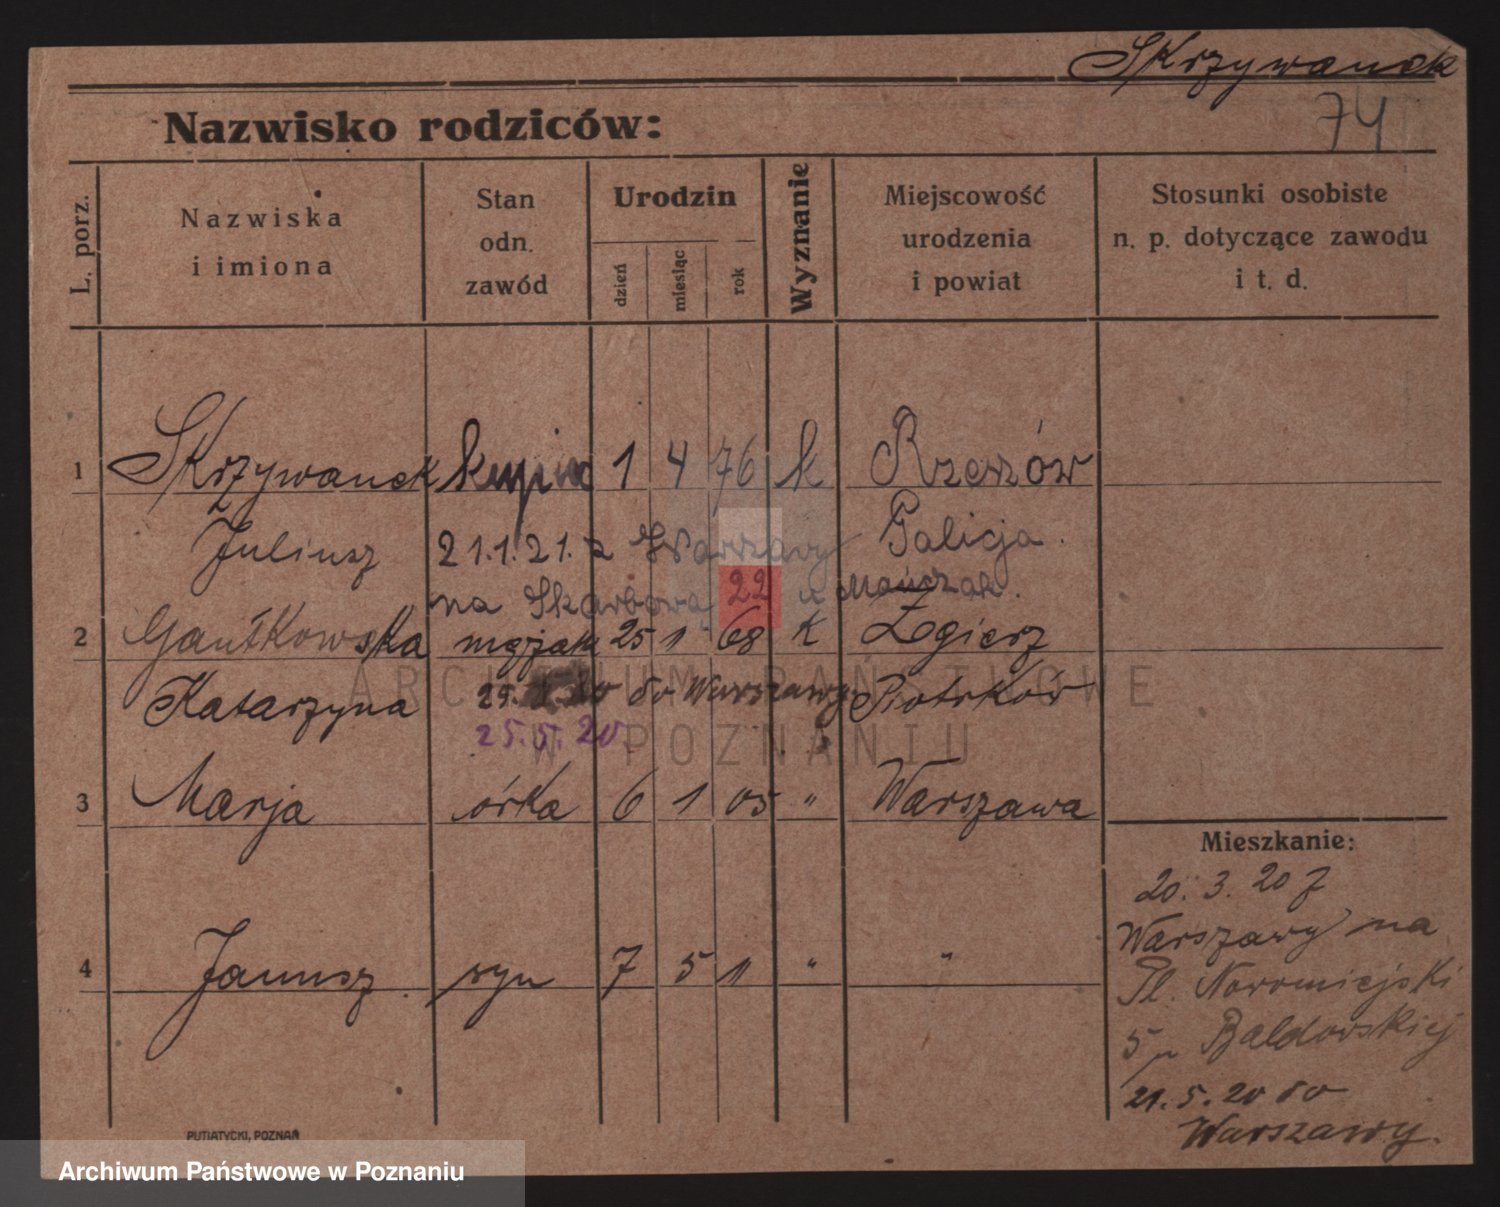 Skrzywanek
74
Nazwisko rodziców:
L. porz.
Nazwiska
i imiona
Stan
odn.
zawód
Urodzin
dzień
miesiąc
rok
Wyznanie
Miejscowość
urodzenia
i powiat
Stosunki osobiste
n. p. dotyczące zawodu
i t. d.
1 Skrzywanek kupiec 1 4 76 k Rzeszów
Juliusz 21.1.21. z Warszawy Galicja.
na Skarbową 22 u
2 Gautkowska mężatk 25 1 68 k Zgierz
Katarzyna do Warszawy Piotrków
25.5.20.
3 Marja córka 6 1 05 " Warszawa
Mieszkanie:
20. 3. 20 z
Warszawy na
Pl. Nowomiejski
5 u Baldowskiej
21.5.20 do
Warszawy.
4 Janusz syn 7 5 11 " "
PUTIATYCKI, POZNAŃ
ARCHIWUM PAŃSTWOWE
W POZNANIU
Archiwum Państwowe w Poznaniu